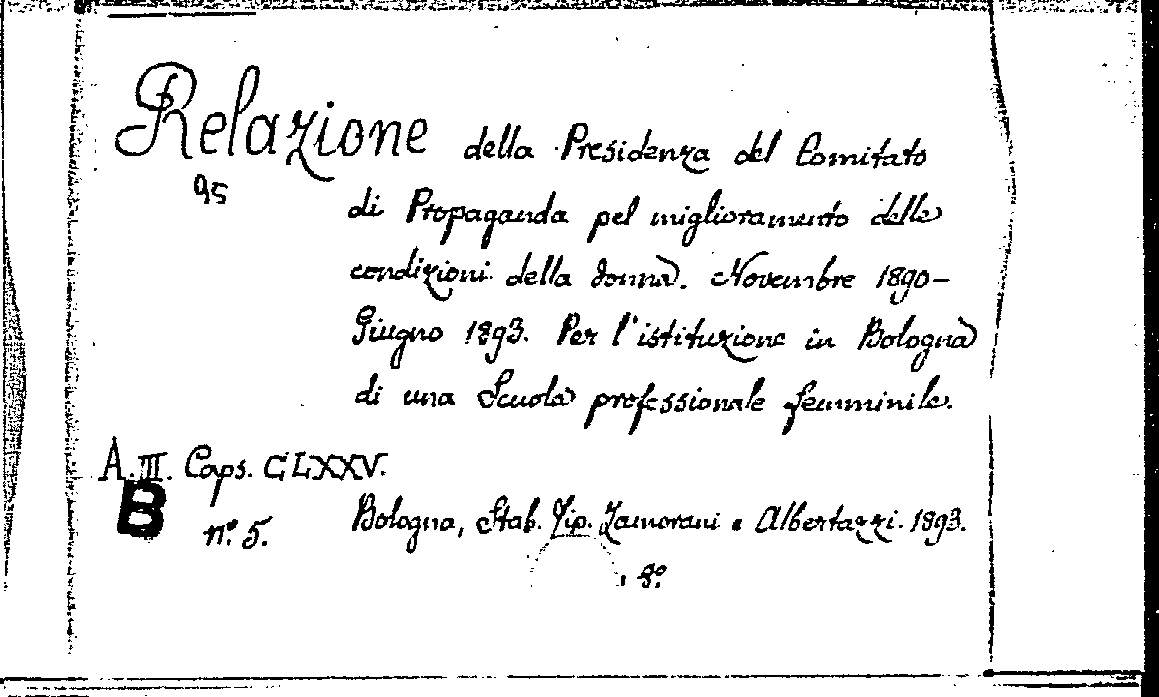 Relazione della Presidenza del Comitato
95
di Propaganda pel miglioramento delle
condizioni della donna. Novembre 1890-
Giugno 1893. Per l'istituzione in Bologna
di una Scuola professionale femminile.
A.III. Caps. CLXXV.
B
n.° 5.
Bologna, Stab. Tip. Zamorani e Albertazzi. 1893.
8°